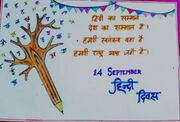 हिंदी का सम्मान
देश का सम्मान है।
हमारी स्वतंत्रता वहां है
हमारी राष्ट्र भाषा जहाँ है।
14 SEPTEMBER
हिन्दी
दिवस